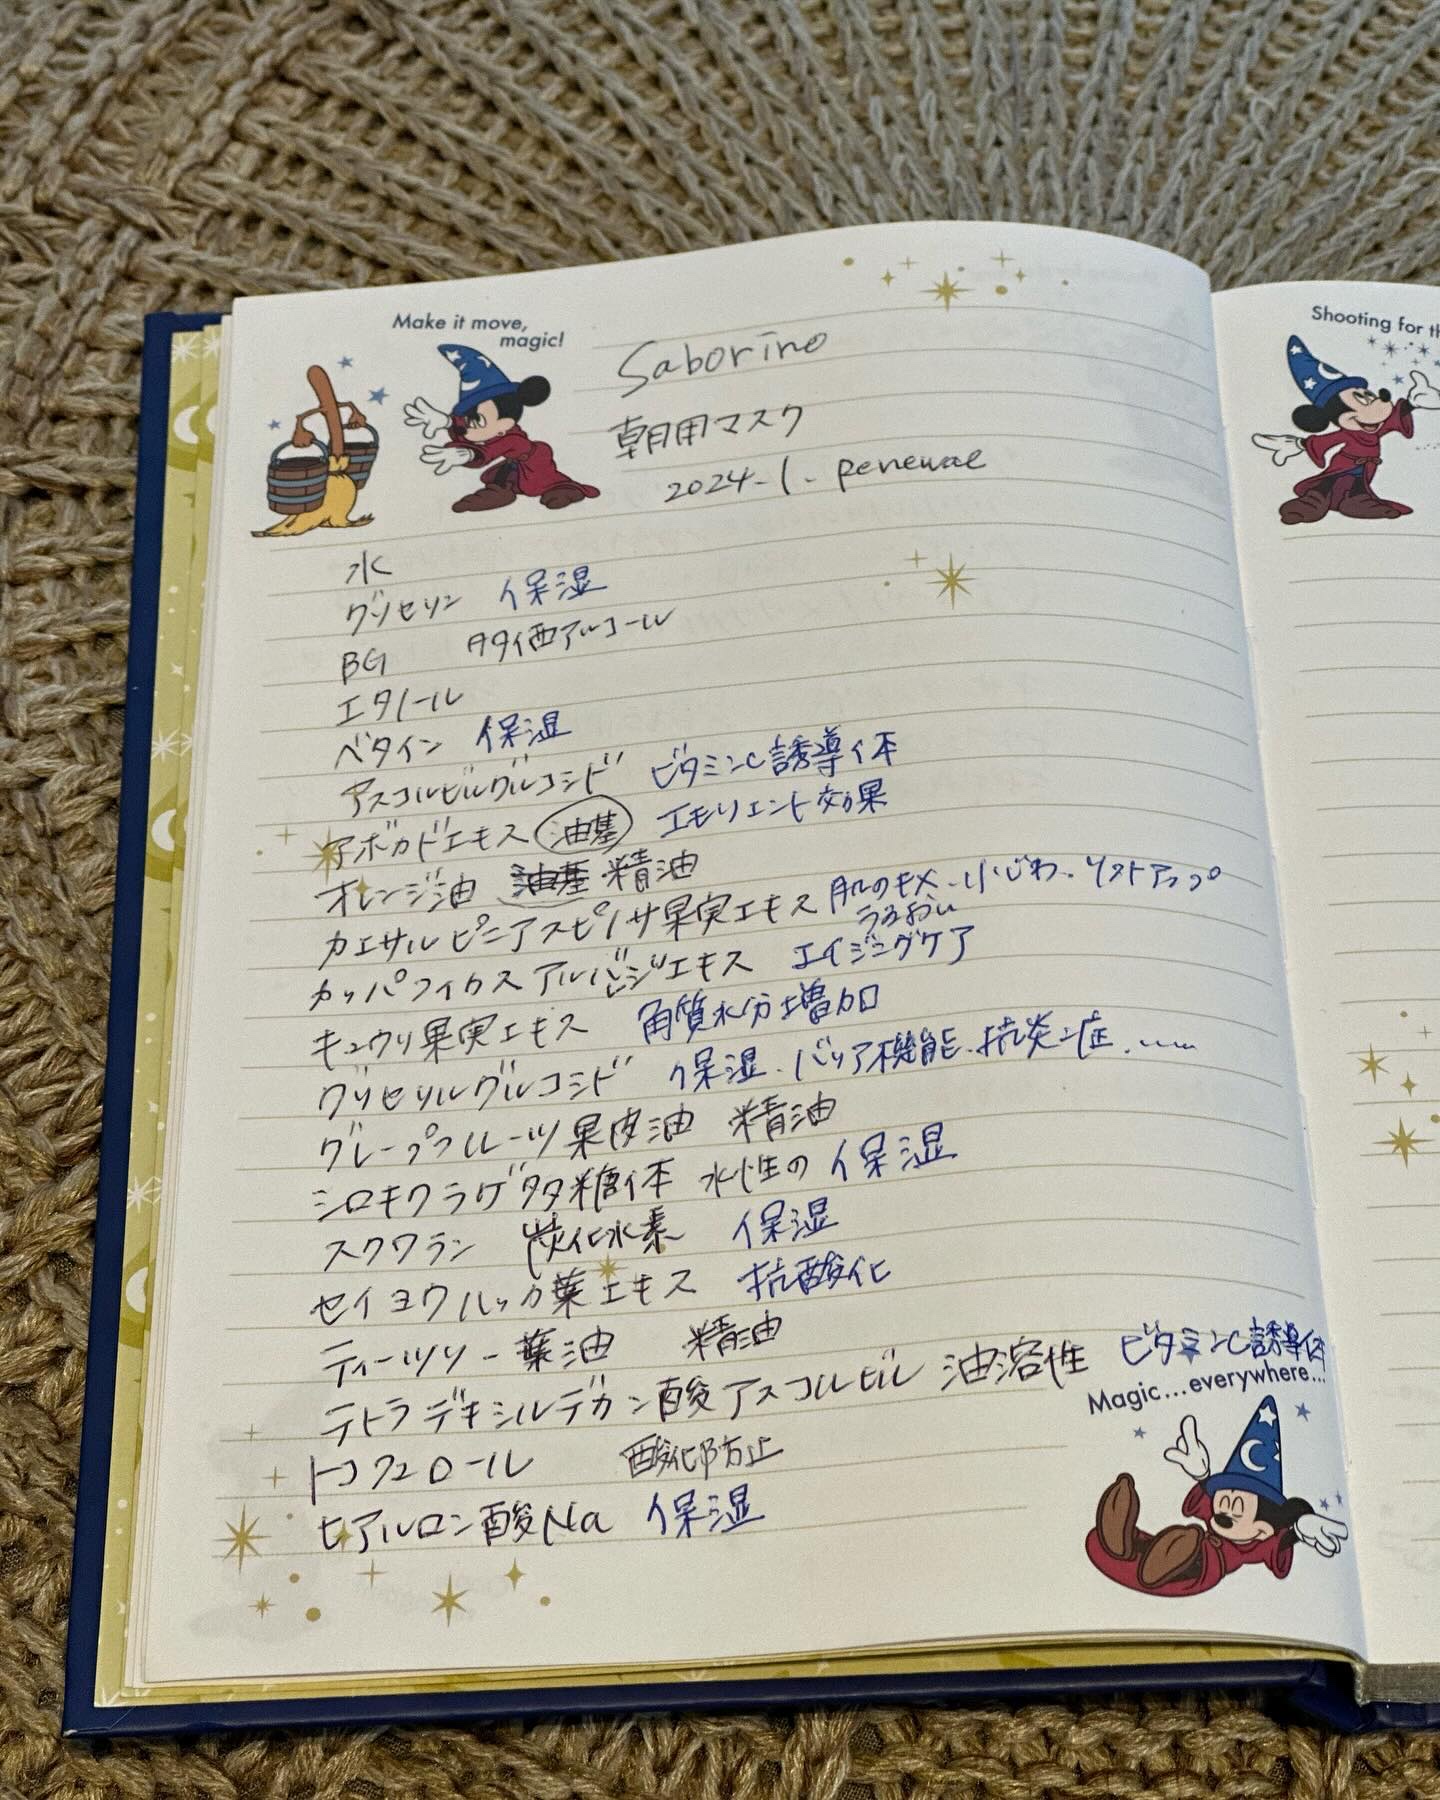 Make it move,
magic!
Saborino
朝用マスク
2024.1. renewal
Shooting for th
水
グリセリン 保湿
BG 多価アルコール
エタノール
ベタイン 保湿
アスコルビルグルコシド ビタミンC誘導体
アボカドエキス 油基 エモリエント効果
オレンジ油 油基 精油
カエサルピニアスピノサ果実エキス 肌のキメ、小じわ、リフトアップ
うるおい
カッパフィカスアルバレジエキス エイジングケア
キュウリ果実エキス 角質水分増加
グリセリルグルコシド 保湿、バリア機能、抗炎症、……
グレープフルーツ果皮油 精油
シロキクラゲ多糖体 水性の保湿
スクワラン 炭化水素 保湿
セイヨウハッカ葉エキス 抗酸化
ティーツリー葉油 精油
テトラデキシルデカン酸アスコルビル 油溶性 ビタミンC誘導体
トコフェロール 酸化防止
ヒアルロン酸Na 保湿
Magic...everywhere...